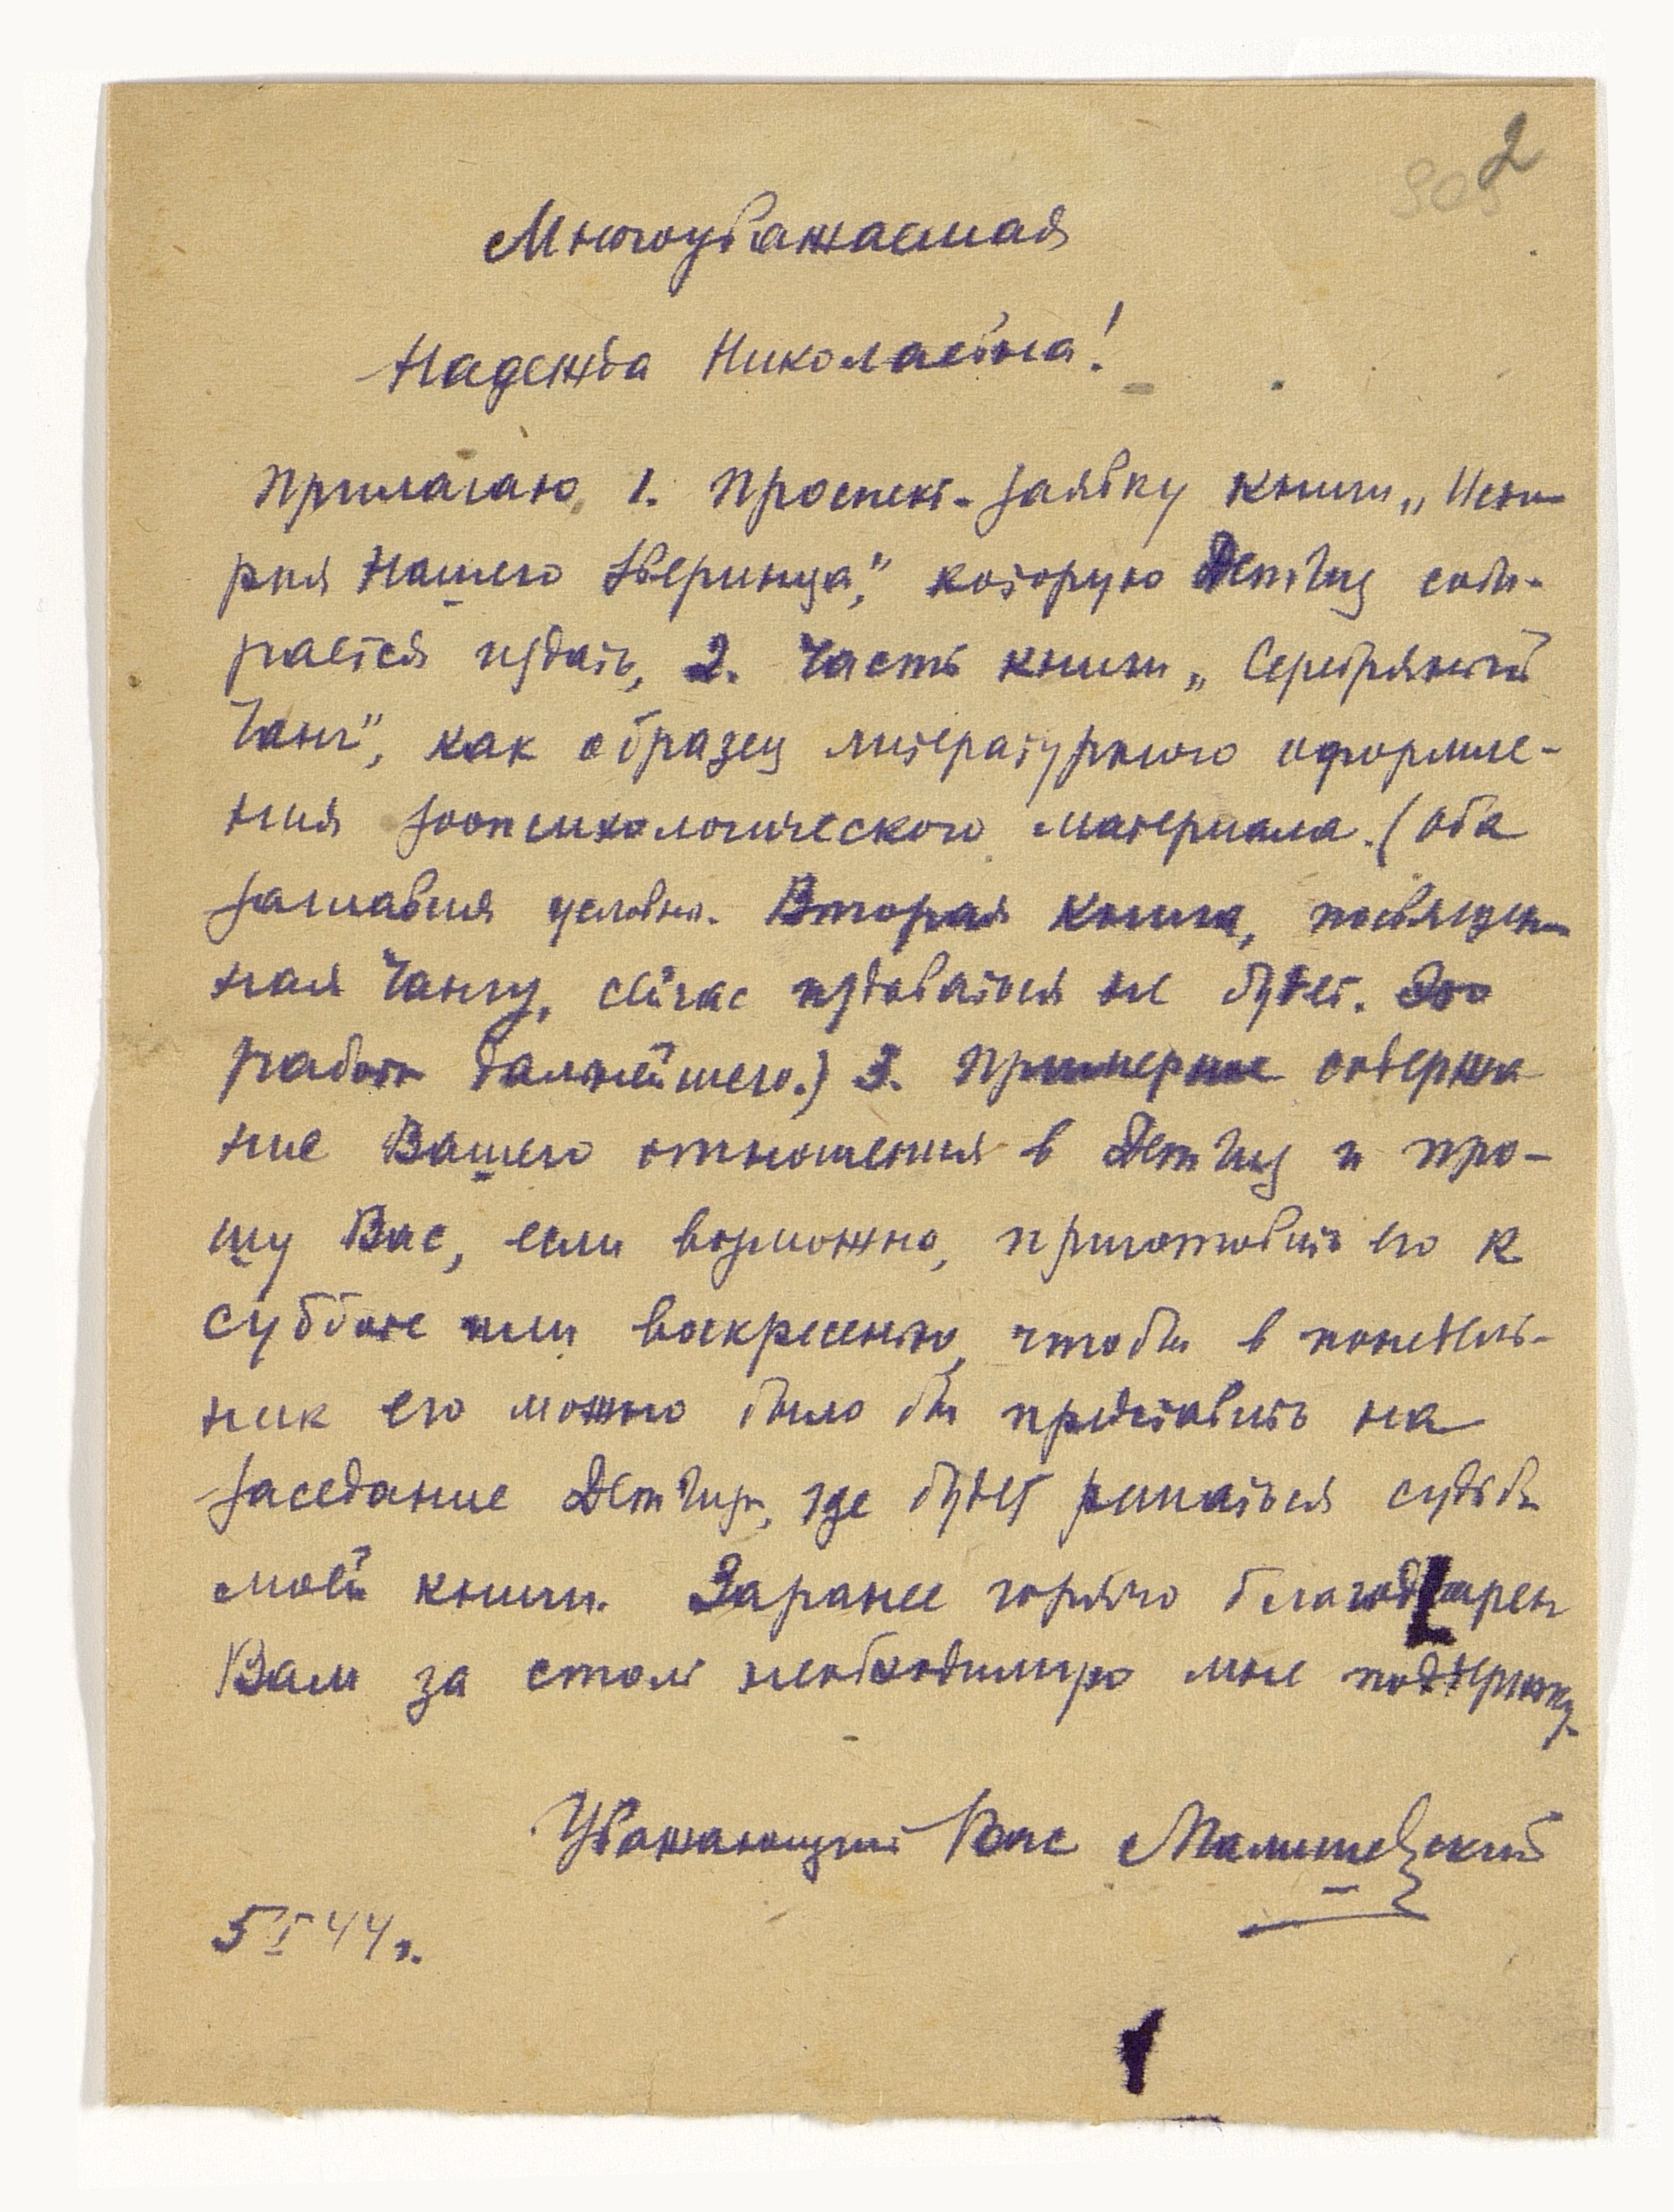 2
Многоуважаемая
Надежда Николаевна!
Прилагаю 1. Проспект-заявку книги „Исто-
рия Нашего Зверинца", которую ДетГиз соби-
рается издать, 2. Часть книги „Серебряный
Чанг", как образец литературного оформле-
ния зоопсихологического материала. (Оба
заглавия условны. Вторая книга, посвящен-
ная Чангу, сейчас издаваться не будет. Это
работа дальнейшего.) 3. Примерное содержа-
ние Вашего отношения в ДетГиз и про-
шу Вас, если возможно, приготовить его к
субботе или воскресению, чтобы в понедель-
ник его можно было бы представить на
заседание ДетГиза, где будет решаться судьба
моей книги. Заранее горячо благодарен
Вам за столь необходимую мне поддержку.
Уважающий Вас Малишевский
5 I 44 г.